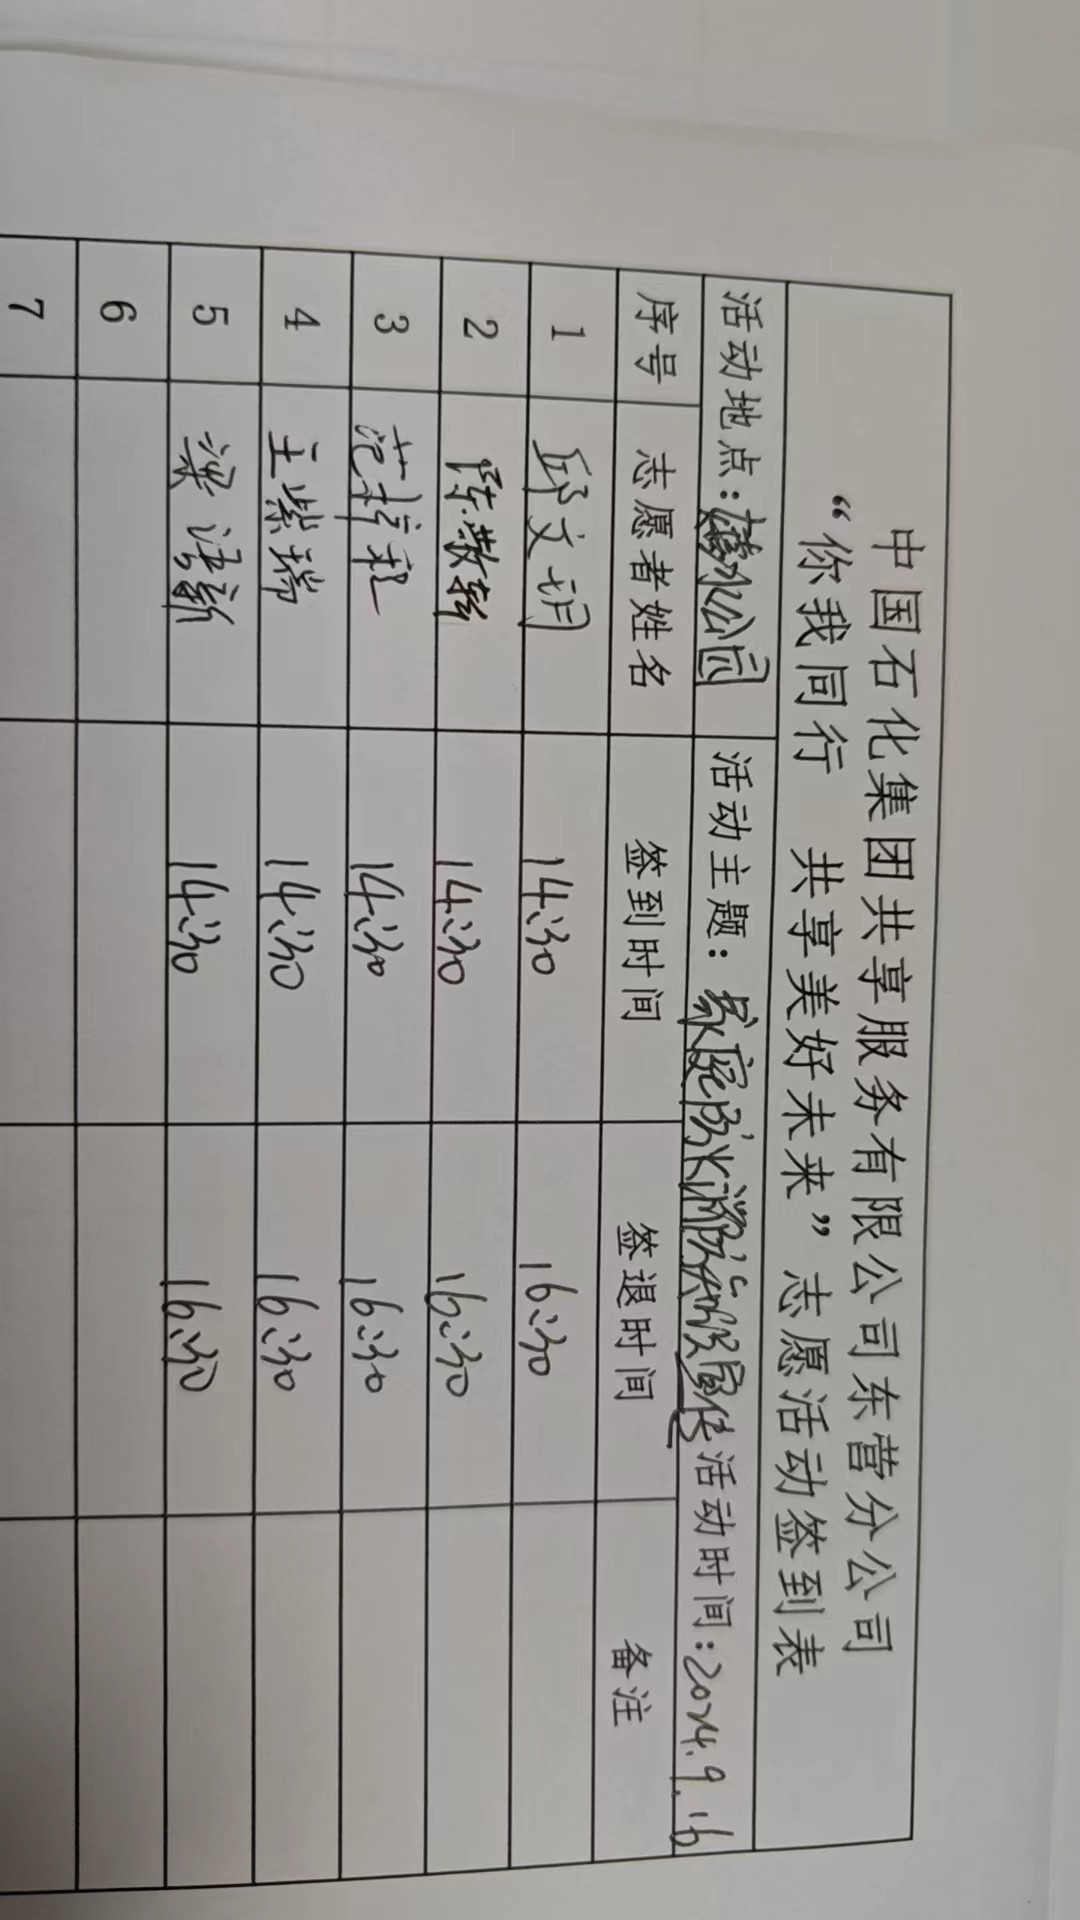 中国石化集团共享服务有限公司东营分公司
“你我同行 共享美好未来”志愿活动签到表
活动地点：水公园 活动主题：家庭防火消防知识宣传 活动时间：2024.9.16
序号 志愿者姓名 签到时间 签退时间 备注
1 邱文玥 14:30 16:30
2 陈 14:30 16:30
3 范 14:30 16:30
4 王紫瑞 14:30 16:30
5 梁洁新 14:30 16:30
6
7